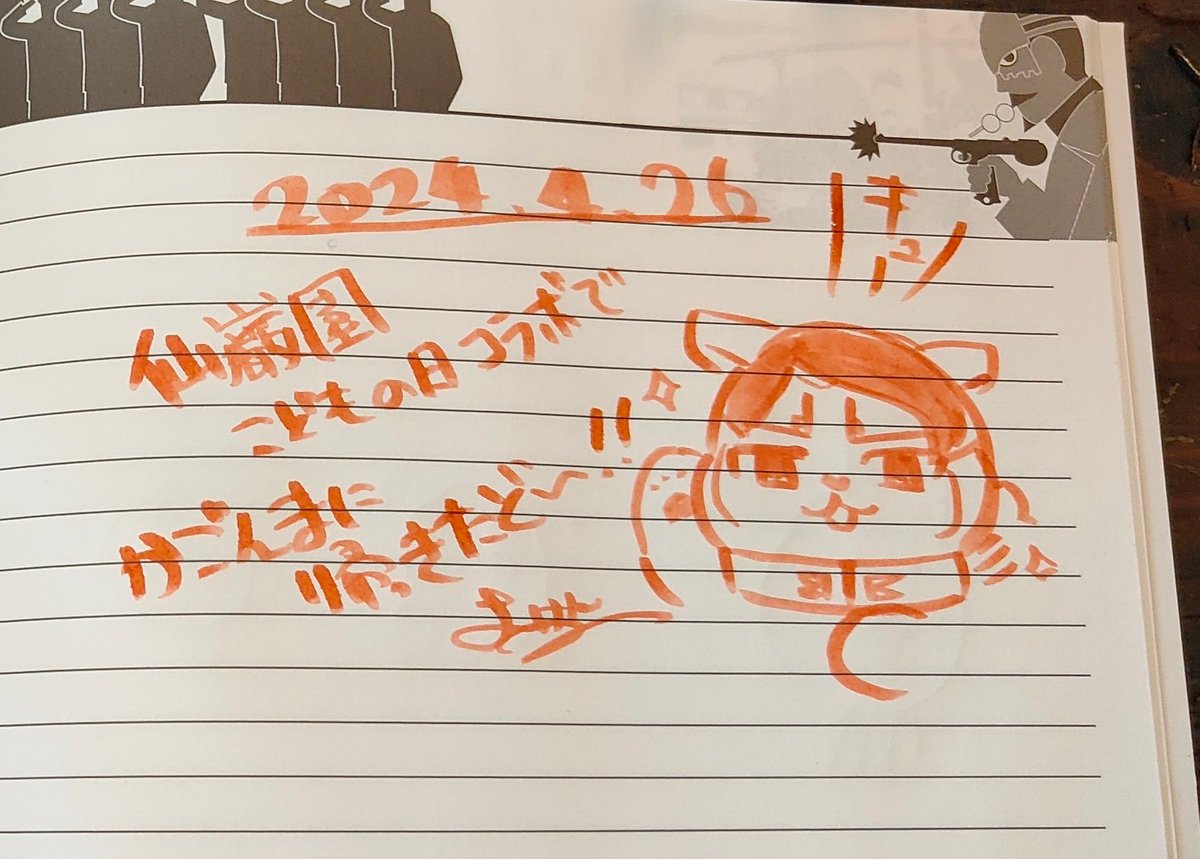 2024.4.26
キュン
仙巌園
こどもの日コラボで
かごんまに
帰ってきたど〜!!